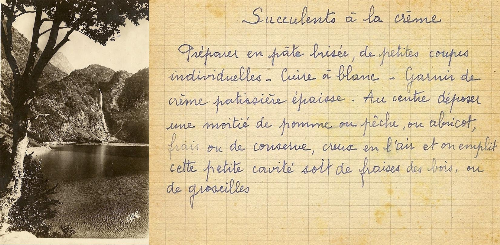 Succulents à la crème
Préparer en pâte brisée, de petites coupes
individuelles - Cuire à blanc - Garnir de
crème patissière épaisse. Au centre déposer
une mortié de pomme ou pêche, ou abricot,
frais ou de conserve, creux en l'air et on emplit
cette petite cavité soit de fraises des bois, ou
de groseilles